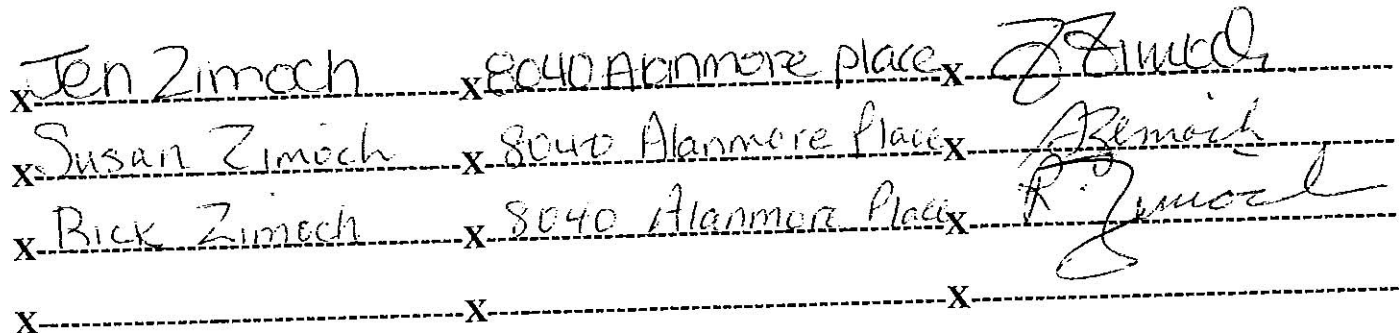 x Jen Zimoch x 8040 Alanmore place x J Zimoch
x Susan Zimoch x 8040 Alanmore Place x S Zimoch
x Rick Zimoch x 8040 Alanmore Place x R. Zimoch
x x x